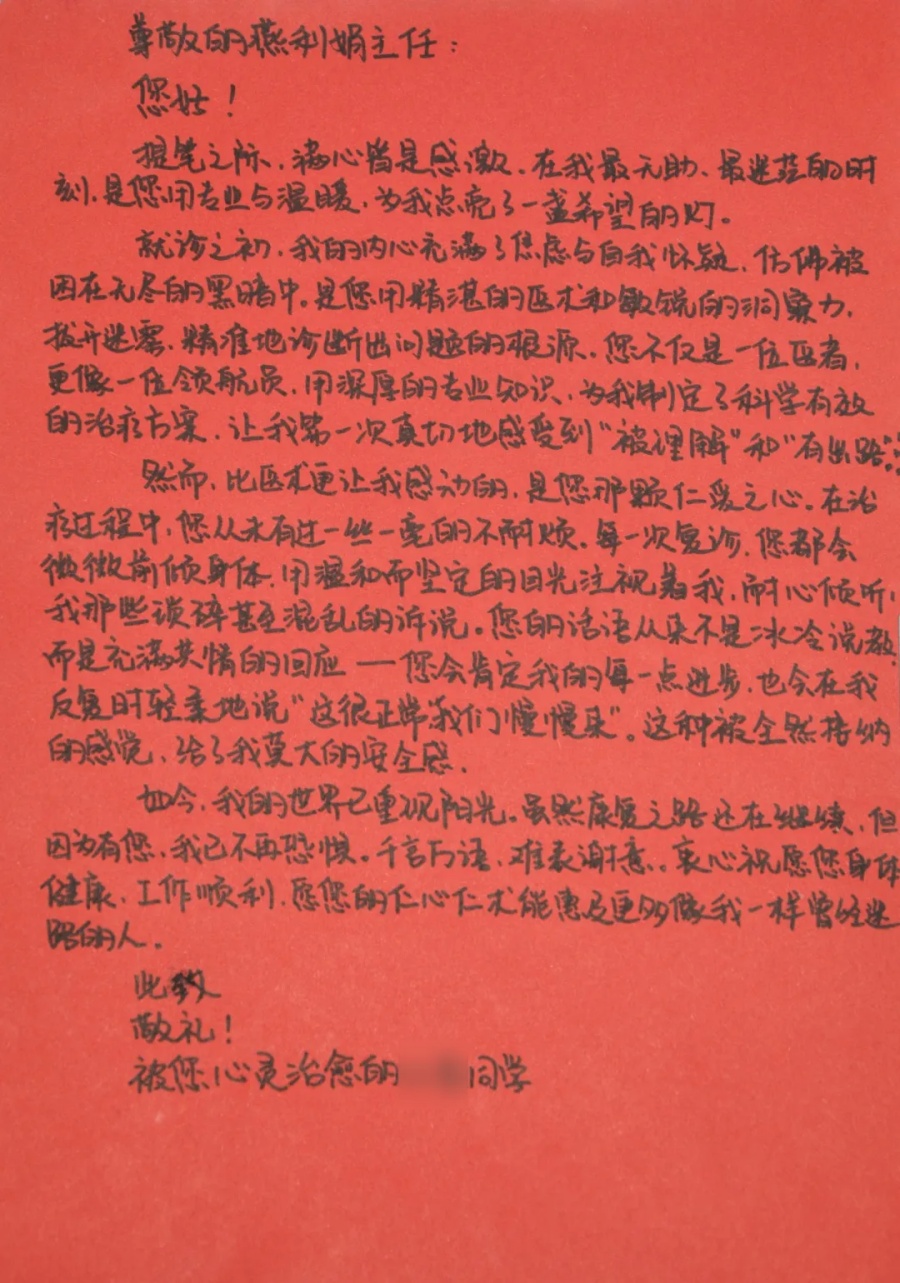 尊敬的燕利娟主任：
您好！
提笔之际，满心皆是感激。在我最无助、最迷茫的时
刻，是您用专业与温暖，为我点亮了一盏希望的灯。
就诊之初，我的内心充满了焦虑与自我怀疑，仿佛被
困在无尽的黑暗中。是您用精湛的医术和敏锐的洞察力，
拨开迷雾，精准地诊断出问题的根源。您不仅是一位医者，
更像一位领航员，用深厚的专业知识，为我制定了科学有效
的治疗方案，让我第一次真切地感受到“被理解”和“有出路”
然而，比医术更让我感动的，是您那颗仁爱之心。在治
疗过程中，您从未有过一丝一毫的不耐烦。每一次复诊，您都会
微微前倾身体，用温和而坚定的目光注视着我，耐心倾听，
我那些琐碎甚至混乱的诉说。您的话语从来不是冰冷说教，
而是充满共情的回应——您会肯定我的每一点进步，也会在我
反复时轻柔地说“这很正常，我们慢慢来”。这种被全然接纳
的感觉，给了我莫大的安全感。
如今，我的世界已重现阳光。虽然康复之路还在继续，但
因为有您，我已不再恐惧。千言万语，难表谢意。衷心祝愿您身体
健康、工作顺利，愿您的仁心仁术能惠及更多像我一样曾经迷
路的人。
此致
敬礼！
被您心灵治愈的 同学